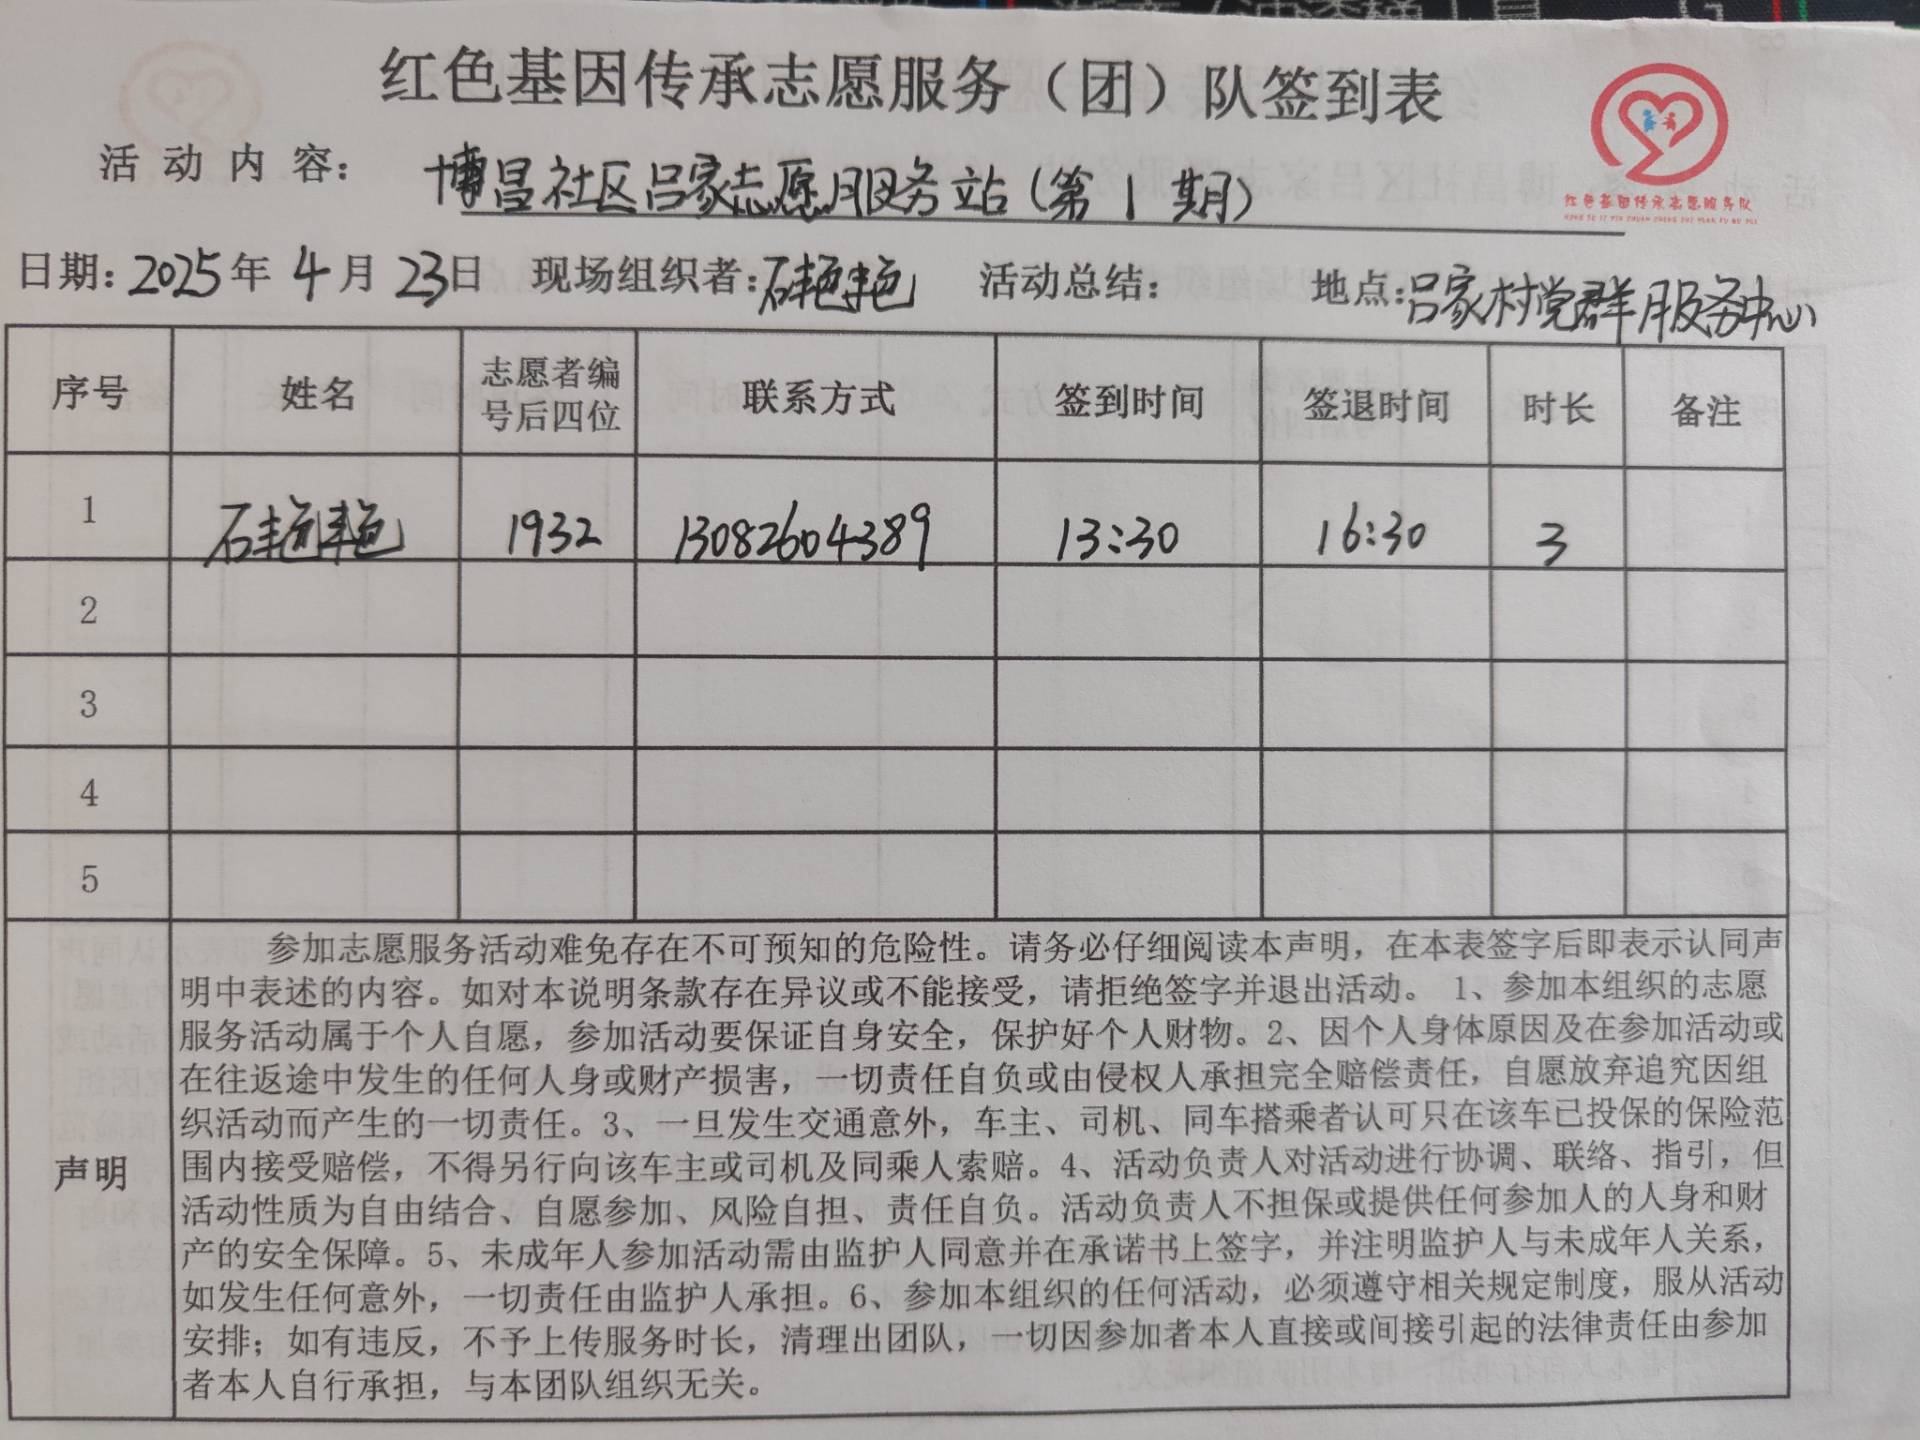 红色基因传承志愿服务（团）队签到表
红色基因传承志愿服务队
HONG SE JI YIN CHUAN CHENG ZHI YUAN FU WU DUI
活动内容： 博昌社区吕家志愿服务站（第1期）
日期：2025年4月23日 现场组织者：石艳艳 活动总结： 地点：吕家村党群服务中心
序号 姓名 志愿者编号后四位 联系方式 签到时间 签退时间 时长 备注
1 石艳艳 1932 13082604389 13:30 16:30 3
2
3
4
5
声明
参加志愿服务活动难免存在不可预知的危险性。请务必仔细阅读本声明，在本表签字后即表示认同声
明中表述的内容。如对本说明条款存在异议或不能接受，请拒绝签字并退出活动。 1、参加本组织的志愿
服务活动属于个人自愿，参加活动要保证自身安全，保护好个人财物。2、因个人身体原因及在参加活动或
在往返途中发生的任何人身或财产损害，一切责任自负或由侵权人承担完全赔偿责任，自愿放弃追究因组
织活动而产生的一切责任。3、一旦发生交通意外，车主、司机、同车搭乘者认可只在该车已投保的保险范
围内接受赔偿，不得另行向该车主或司机及同乘人索赔。4、活动负责人对活动进行协调、联络、指引，但
活动性质为自由结合、自愿参加、风险自担、责任自负。活动负责人不担保或提供任何参加人的人身和财
产的安全保障。5、未成年人参加活动需由监护人同意并在承诺书上签字，并注明监护人与未成年人关系，
如发生任何意外，一切责任由监护人承担。6、参加本组织的任何活动，必须遵守相关规定制度，服从活动
安排；如有违反，不予上传服务时长，清理出团队，一切因参加者本人直接或间接引起的法律责任由参加
者本人自行承担，与本团队组织无关。